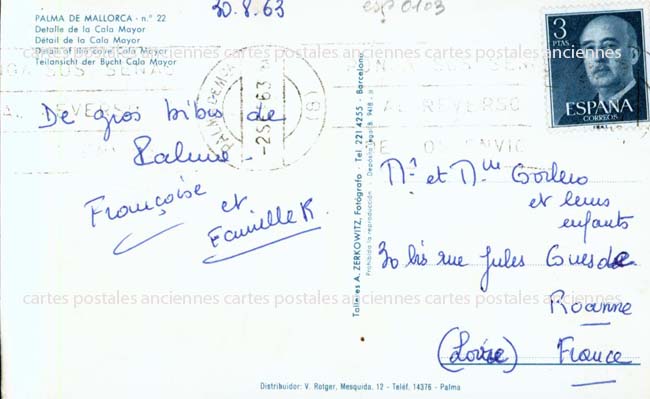 30.8.63
esp 0103
PALMA DE MALLORCA - n.º 22
Detalle de la Cala Mayor
Détail de la Cala Mayor
Detail of the cove Cala Mayor
Teilansicht der Bucht Cala Mayor
3
PTAS
ESPAÑA
CORREOS
PONGA SUS SEÑAS
AL REVERSO
DE
De gros bibis de
Palma.
Françoise
et
Famille K.
Talleres A. ZERKOWITZ, Fotógrafo - Tel. 221 4255 - Barcelona
Prohibida la reproducción - Depósito legal B. 9418
Mr et Mme Gorlero
et leurs
enfants
30 bis rue Jules Guesde
Roanne
(Loire) France
cartes postales anciennes cartes postales anciennes cartes postales anciennes
Distribuidor: V. Rotger, Mesquida, 12 - Teléf. 14376 - Palma